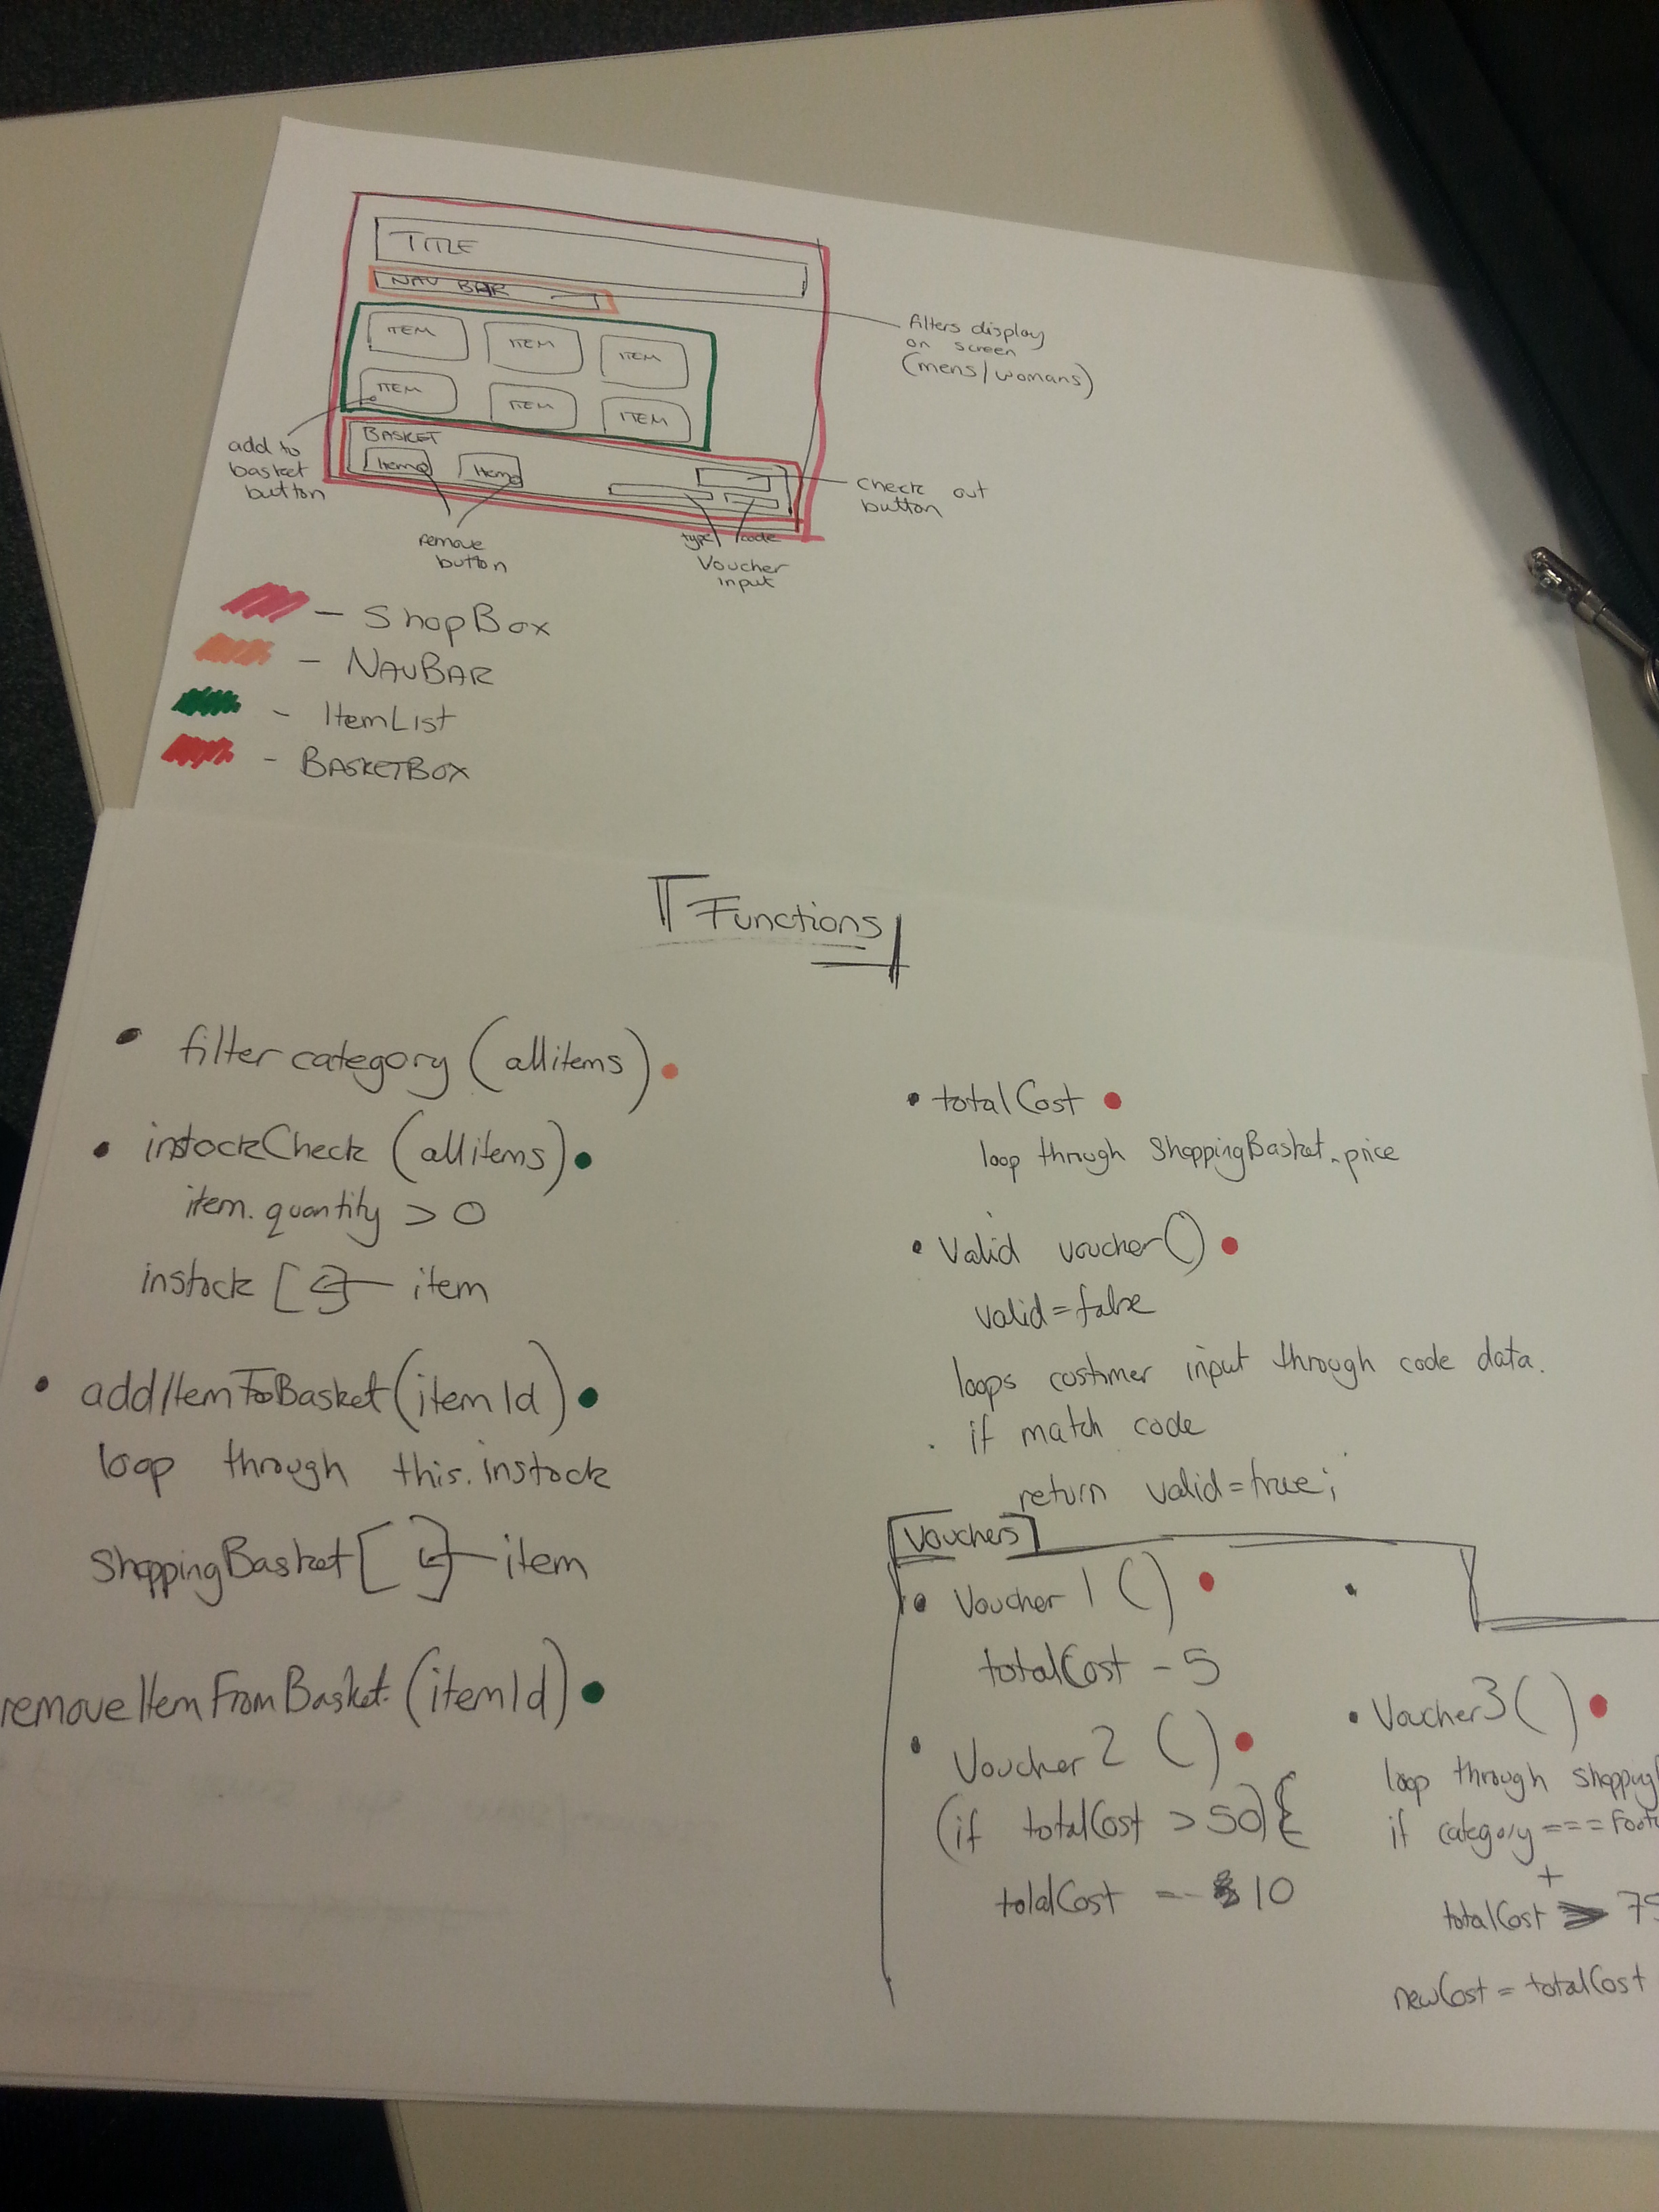 TITLE
NAV BAR
filters display
on screen
(mens/womans)
ITEM
ITEM
ITEM
ITEM
ITEM
ITEM
add to
basket
button
BASKET
Item
Item
check out
button
remove
button
type
code
Voucher
input
- ShopBox
- NAVBAR
- ItemList
- BASKETBOX
Functions
• filter category (allitems)
• instockCheck (allitems)
item.quantity > 0
instock [ ] item
• addItemToBasket(itemId)
loop through this.instock
shoppingBasket [ ] item
removeItemFromBasket (itemId)
• totalCost
loop through shoppingBasket.price
• Valid voucher()
valid=false
loops costmer input through code data.
. if match code
return valid=true;
Vouchers
• Voucher 1 ()
totalCost - 5
• Voucher 2 ()
(if totalCost > 50) {
totalCost = - 10
• Voucher3 ()
loop through shopping
if category ===
+
totalCost > 75
newCost = totalCost